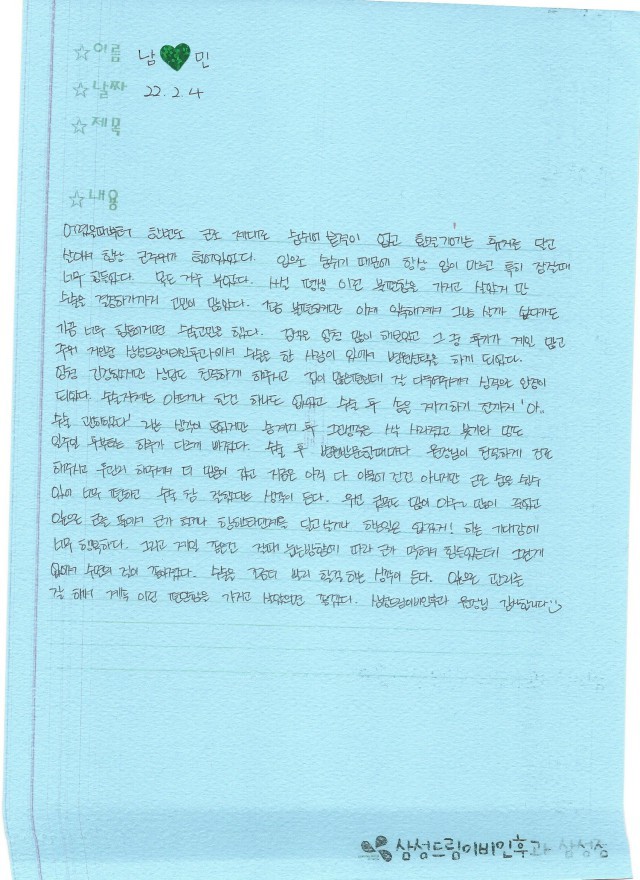 ☆이름 남 민
☆날짜 22.2.4
☆제목
☆내용
어렸을때부터 한번도 코로 제대로 숨쉬어 본적이 없고 환절기에는 휴지를 달고
살아서 항상 코주위가 헐어있었다. 입으로 숨쉬기 때문에 항상 입이 마르고 특히 잠잘때
너무 힘들었다. 목도 자주 부었었다. 사실 평생 이런 불편함을 가지고 살았지만
수술을 결정하기까지 고민이 많았다. 조금 불편하지만 이제 익숙해져서 그냥 살까 싶다가도
가끔 너무 힘들어지면 수술고민을 했다. 검색은 엄청 많이 해보았고 그 중 후기가 제일 많고
주위 지인중 삼성드림이비인후과에서 수술을 한 사람이 있어서 병원선택을 하게 되었다.
엄청 긴장했지만 상담도 친절하게 해주시고 겁이 많은편인데 잘 다독여주셔서 심적으로 안정이
되었다. 수술자체는 아프거나 한건 하나도 없었고 수술 후 솜을 제거하기 전까지 '아..
수술 괜히했다' 라는 생각이 들었지만 솜제거 후 그런생각은 싹 사라졌고 붓기와 멍도
일주일 후부터는 하루가 다르게 빠졌다. 수술 후 병원방문할때마다 원장님이 친절하게 진료
해주시고 꼼꼼히 해주셔서 더 믿음이 갔고 지금은 아직 다 아물어진건 아니지만 코로 숨을 쉴수
있어 너무 편하고 수술 참 잘했다는 생각이 든다. 우선 콧물도 많이 아주 많이 줄었고
앞으로 코를 풀어서 코가 헐거나 항히스타민제를 달고살거나 하는일은 없겠지! 하는 기대감에
너무 행복하다. 그리고 제일 좋은건 잘때 눕는방향에 따라 코가 막혀서 힘들었는데 그런게
없어서 수면의 질이 좋아졌다. 수술을 조금더 빨리 할걸 하는 생각이 든다. 앞으로 관리를
잘 해서 계속 이런 편안함을 가지고 살았으면 좋겠다. 삼성드림이비인후과 원장님 감사합니다 :)
삼성드림이비인후과 삼성점